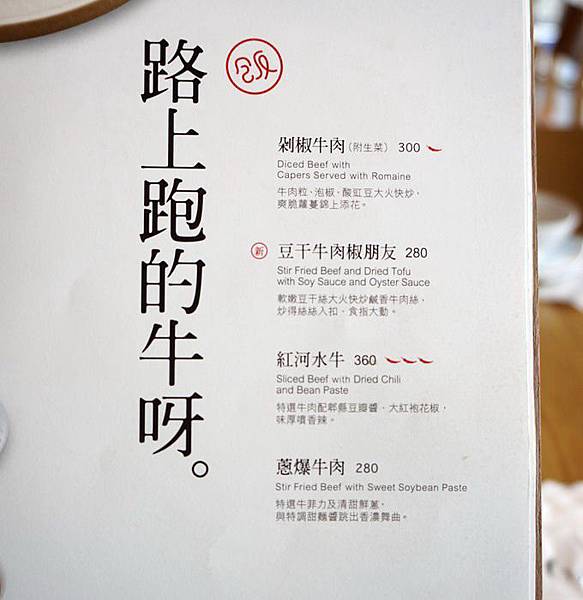 路上跑的牛呀。
剁椒牛肉(附生菜) 300
Diced Beef with
Capers Served with Romaine
牛肉粒、泡椒、酸豇豆大火快炒，
爽脆蘿蔓錦上添花。
新 豆干牛肉椒朋友 280
Stir Fried Beef and Dried Tofu
with Soy Sauce and Oyster Sauce
軟嫩豆干絲大火快炒鹹香牛肉絲、
炒得絲絲入扣、食指大動。
紅河水牛 360
Sliced Beef with Dried Chili
and Bean Paste
特選牛肉配郫縣豆瓣醬、大紅袍花椒，
味厚噴香辣。
蔥爆牛肉 280
Stir Fried Beef with Sweet Soybean Paste
特選牛菲力及清甜鮮蔥，
與特調甜麵醬跳出香濃舞曲。